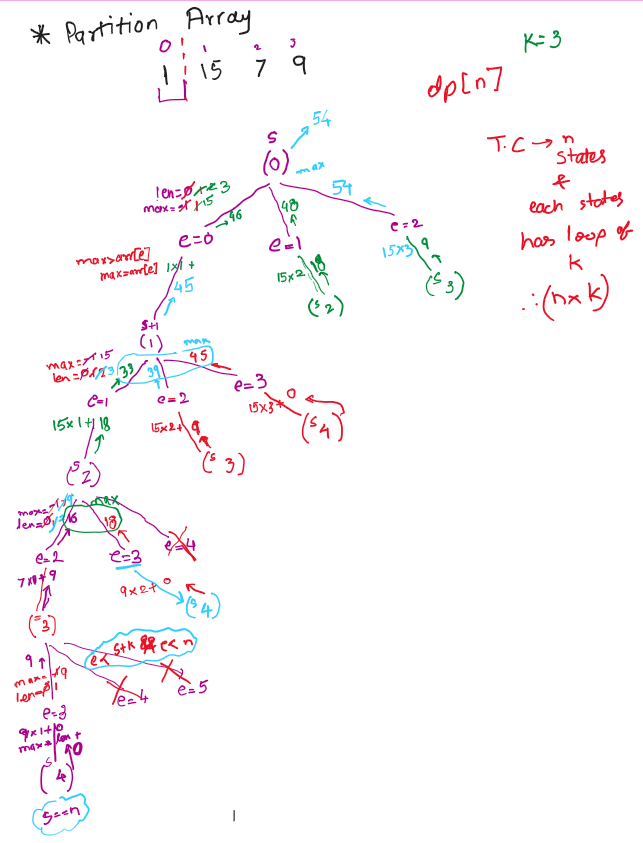 * Partition Array
0 1 2 3
1 15 7 9
K=3
dp[n]
T.C → n
states
&
each states
has loop of
k
∴(n×k)
54
s
(0)
max
len=0 1 2 3
max=-1 1 15
46
48
54
e=0
e=1
e=2
max>arr[e]
max=arr[e]
1×1+
45
15×2
18
15×3
9
(s 2)
(s 3)
s+1
(1)
max
max=-1 15
len=0 1 2 3
33
39
45
e=1
e=2
e=3
15×1+18
15×2+ 9
15×3+ 0
(s 2)
(s 3)
(s 4)
max=-1 7 9
len=0 1 2
max
16
18
e=2
e=3
e=4
7×1+9
9×2+0
(s 4)
(s 3)
e< s+k && e<n
9
max=-1 9
len=0 1
e=4
e=5
e=3
9×1+0
max*len+
0
(s 4)
s==n